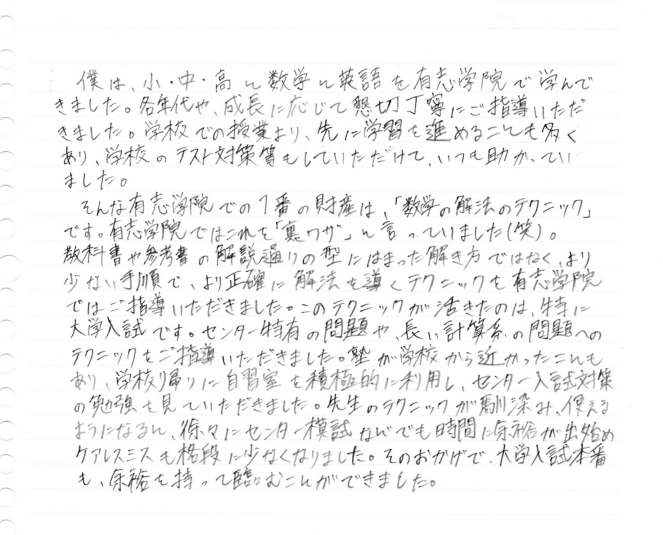 僕は、小・中・高と数学と英語を有志学院で学んで
きました。各年代や、成長に応じて懇切丁寧にご指導いただ
きました。学校での授業より、先に学習を進めることも多く
あり、学校のテスト対策等もしていただけて、いつも助かってい
ました。
そんな有志学院での1番の財産は、「数学の解法のテクニック」
です。有志学院ではこれを「裏ワザ」と言っていました(笑)。
教科書や参考書の解説通りの型にはまった解き方ではなく、より
少ない手順で、より正確に解法を導くテクニックを有志学院
ではご指導いただきました。このテクニックが活きたのは、特に
大学入試です。センター特有の問題や、長い計算系の問題への
テクニックをご指導いただきました。塾が学校から近かったことも
あり、学校帰りに自習室を積極的に利用し、センター入試対策
の勉強を見ていただきました。先生のテクニックが馴染み、使える
ようになると、徐々にセンター模試などでも時間に余裕が出始め
ケアレスミスも格段に少なくなりました。そのおかげで、大学入試本番
も、余裕を持って臨むことができました。